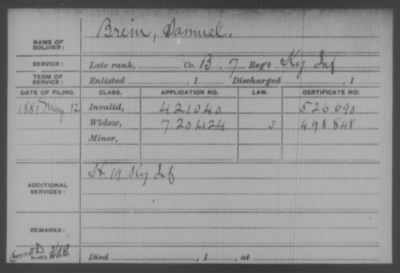 NAME OF SOLDIER: Brein, Samuel.
SERVICE: Late rank, Co. B, 7 Reg't Ky Inf
TERM OF SERVICE: Enlisted , 1 Discharged , 1
DATE OF FILING. CLASS. APPLICATION NO. LAW. CERTIFICATE NO.
1881 May 12 Invalid, 421040 526690
Widow, 720424 J 498848
Minor,
ADDITIONAL SERVICES: H 19 Ky Inf
REMARKS:
Died , 1 , at